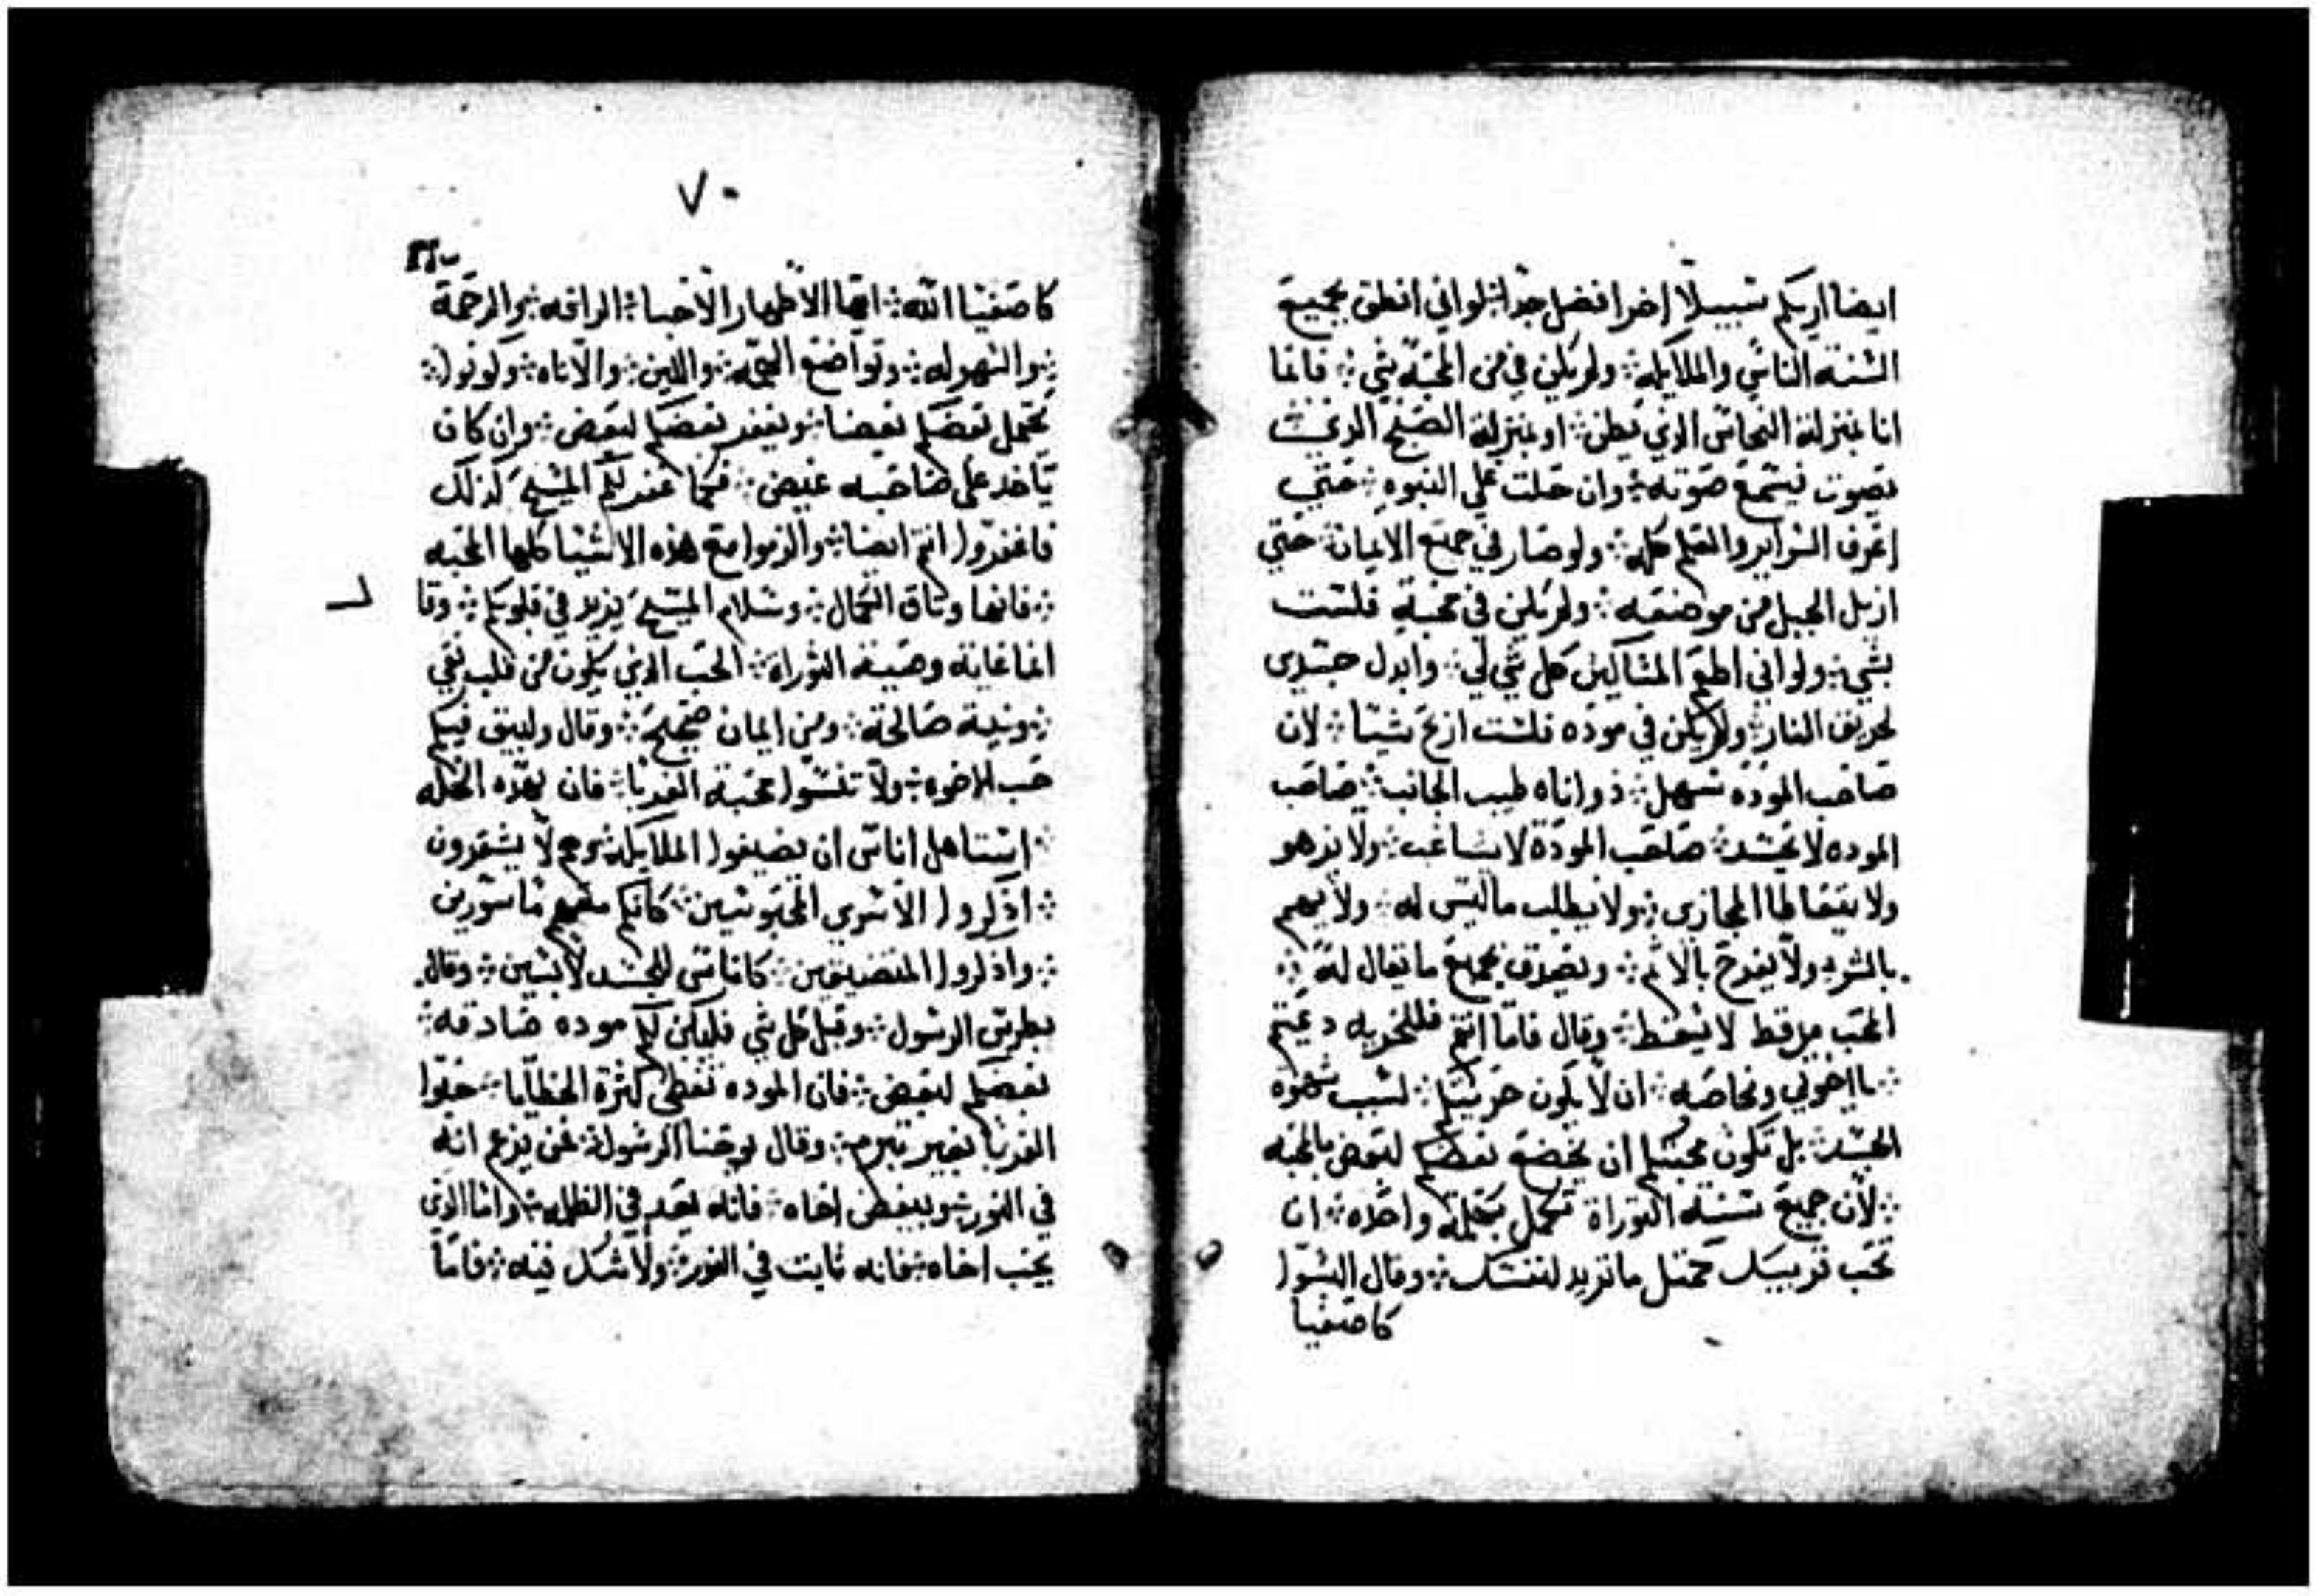 ايضا اريكم سبيلا اخر افضل جدا ❊ لو اني انطق بجميع
السنة الناس والملايكه ❊ ولم يكن في من المحبة شي ❊ فانما
انا بمنزلة النحاس الذي يطن ❊ او بمنزلة الصنج الذي
يصوت فيسمع صوته ❊ وان حلت علي النبوه ❊ حتي
اعرف السراير والعلم كله ❊ ولو صار في جميع الايمان ❊ حتي
ازيل الجبل من موضعه ❊ ولم يكن في محبة فلست
بشي ❊ ولو اني اطعم المساكين كل شي لي ❊ وابدل جسدي
لحريق النار ❊ ولم يكن في موده فلست اربح شيا ❊ لان
صاحب الموده سهل ❊ ذو اناه طيب الجانب ❊ صاحب
الموده لا يحسد ❊ صاحب المودة لا يشاغب ❊ ولا يزهو
ولا يتعاطا المجازي ❊ ولا يطلب ما ليس له ❊ ولا يهم
بالشر ❊ ولا يفرح بالاثم ❊ ويصدق بجميع ما يقال له ❊
المحب من قط لا يسقط ❊ وقال فاما انتم فللحريه دعيتم
❊ يا اخوتي وبخاصه ❊ ان لا يكون حريتكم ❊ لسبب شهوه
الجسد ❊ بل تكون محبتكم ان يخضع بعضكم لبعض بالمحبه
❊ لان جميع سنة التوراة تكمل بكلمه واحده ❊ ان
تحب قريبك كمثل ما تريد لنفسك ❊ وقال الرسول
كاصفيا
٧٠
كاصفيا الله ❊ ايها الاطهار الاحبا ❊ الرافه ❊ والرحمة
❊ والسهوله ❊ وتواضع الهمه ❊ واللين ❊ والاناه ❊ وكونوا ❊
يحمل بعضكم بعضا ❊ ويغفر بعضكم لبعض ❊ وان كان
ياخد على صاحبه غيض ❊ فكما غفر لكم المسيح كذلك
فاغفروا انتم ايضا ❊ والزموا مع هذه الاشيا كلها المحبه
❊ فانها وثاق الكمال ❊ وسلام المسيح يزيد في قلوبكم ❊ وقا
انما غاية وصية التوراة ❊ الحب الذي يكون من قلب نقي
❊ ونية صالحة ❊ ومن ايمان صحيح ❊ وقال وليبق فيكم
حب الاخوه ❊ ولا تنسوا محبة الغربا ❊ فان بهذه الخله
❊ استاهل اناس ان يضيفوا الملايكه ❊ وهم لا يشعرون
❊ اذكروا الاسري المحبوسين ❊ كانكم معهم ماسورين
❊ واذكروا المتضيقين ❊ كاناس للجسد لابسين ❊ وقال
بطرس الرسول ❊ وقبل كل شي فليكن لكم موده صادقه ❊
بعضكم لبعض ❊ فان الموده تغطي كثرة الخطايا ❊ حبوا
الغربا بغير تبرم ❊ وقال يوحنا الرسول ❊ من يزعم انه
في النور ❊ ويبغض اخاه ❊ فانه بعد في الظلمه ❊ واما الذي
يحب اخاه ❊ فانه ثابت في النور ❊ ولا شك فيه ❊ فاما